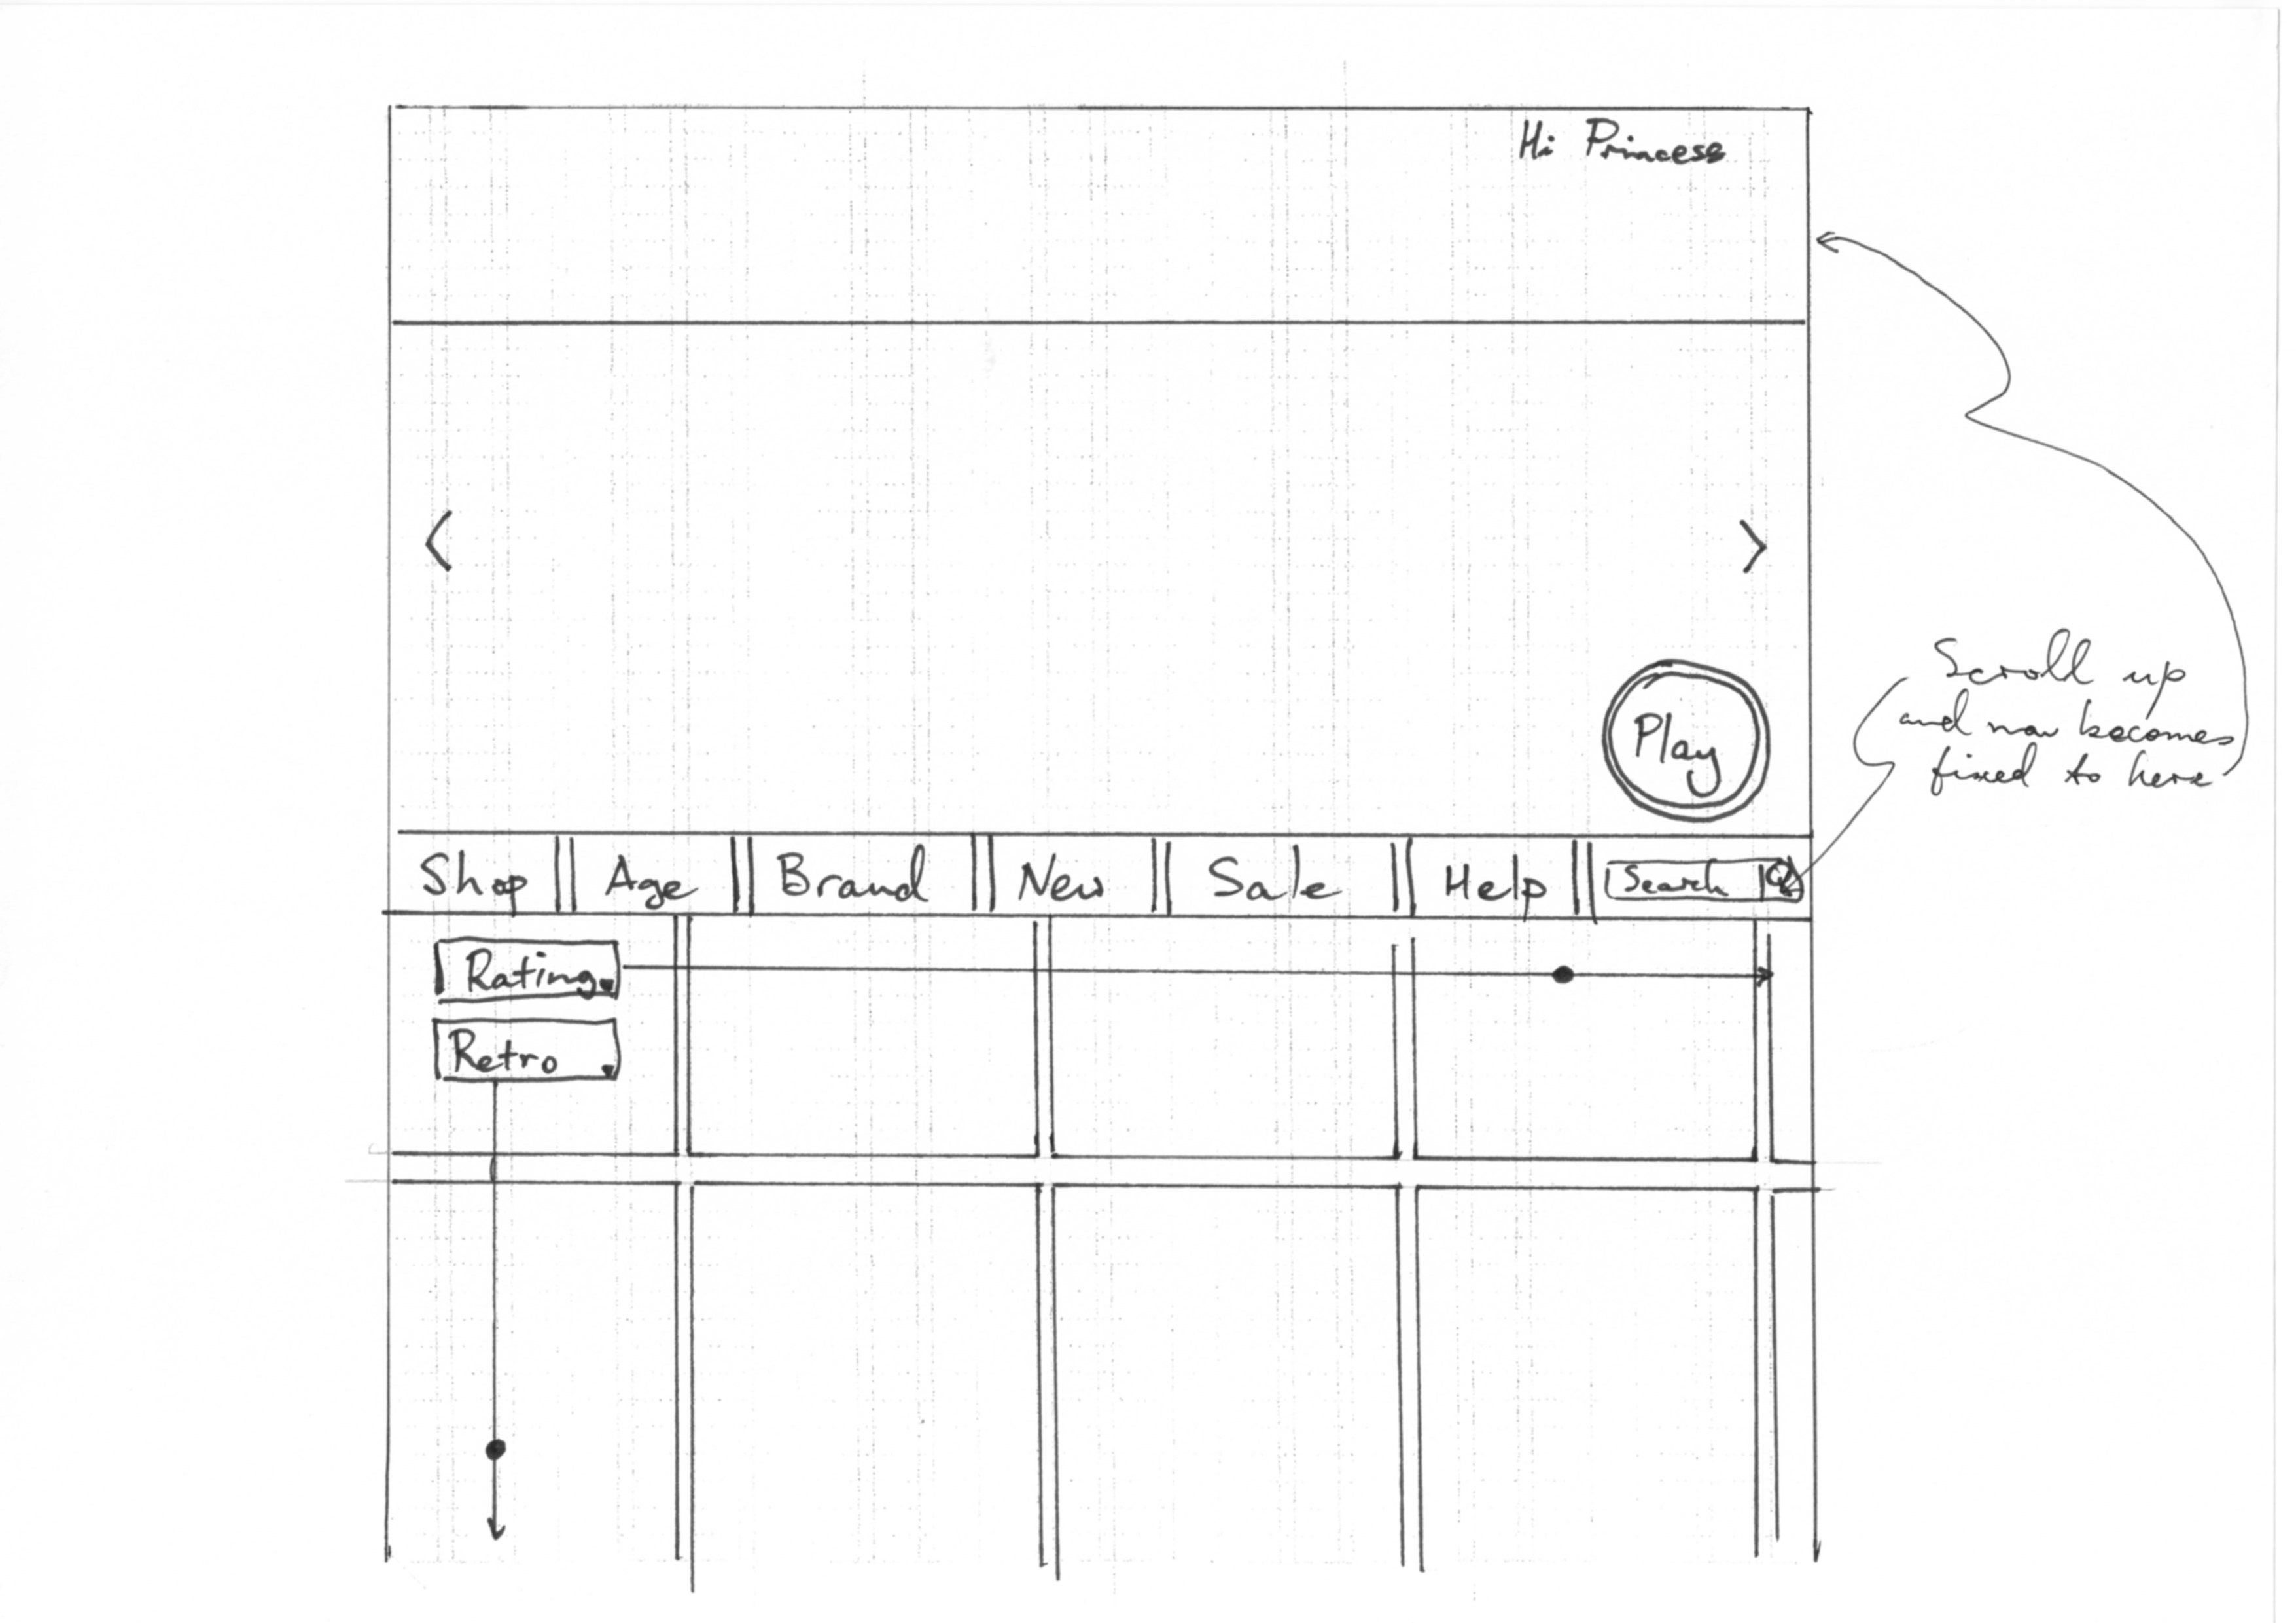 Hi Princess
<
>
Play
Scroll up
and nav becomes
fixed to here
Shop || Age || Brand || New || Sale || Help || Search
Rating
Retro